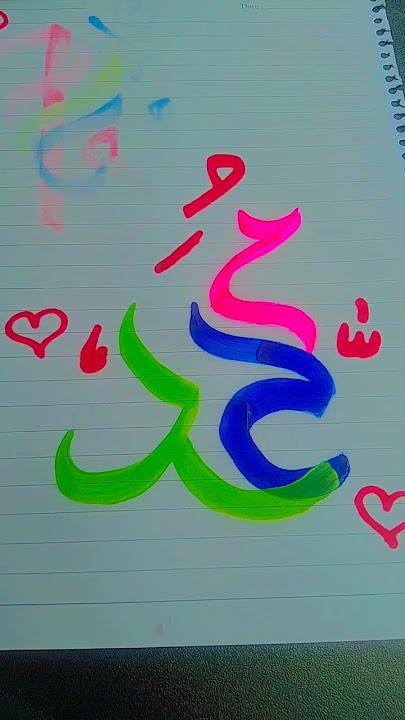 Date:
محمد